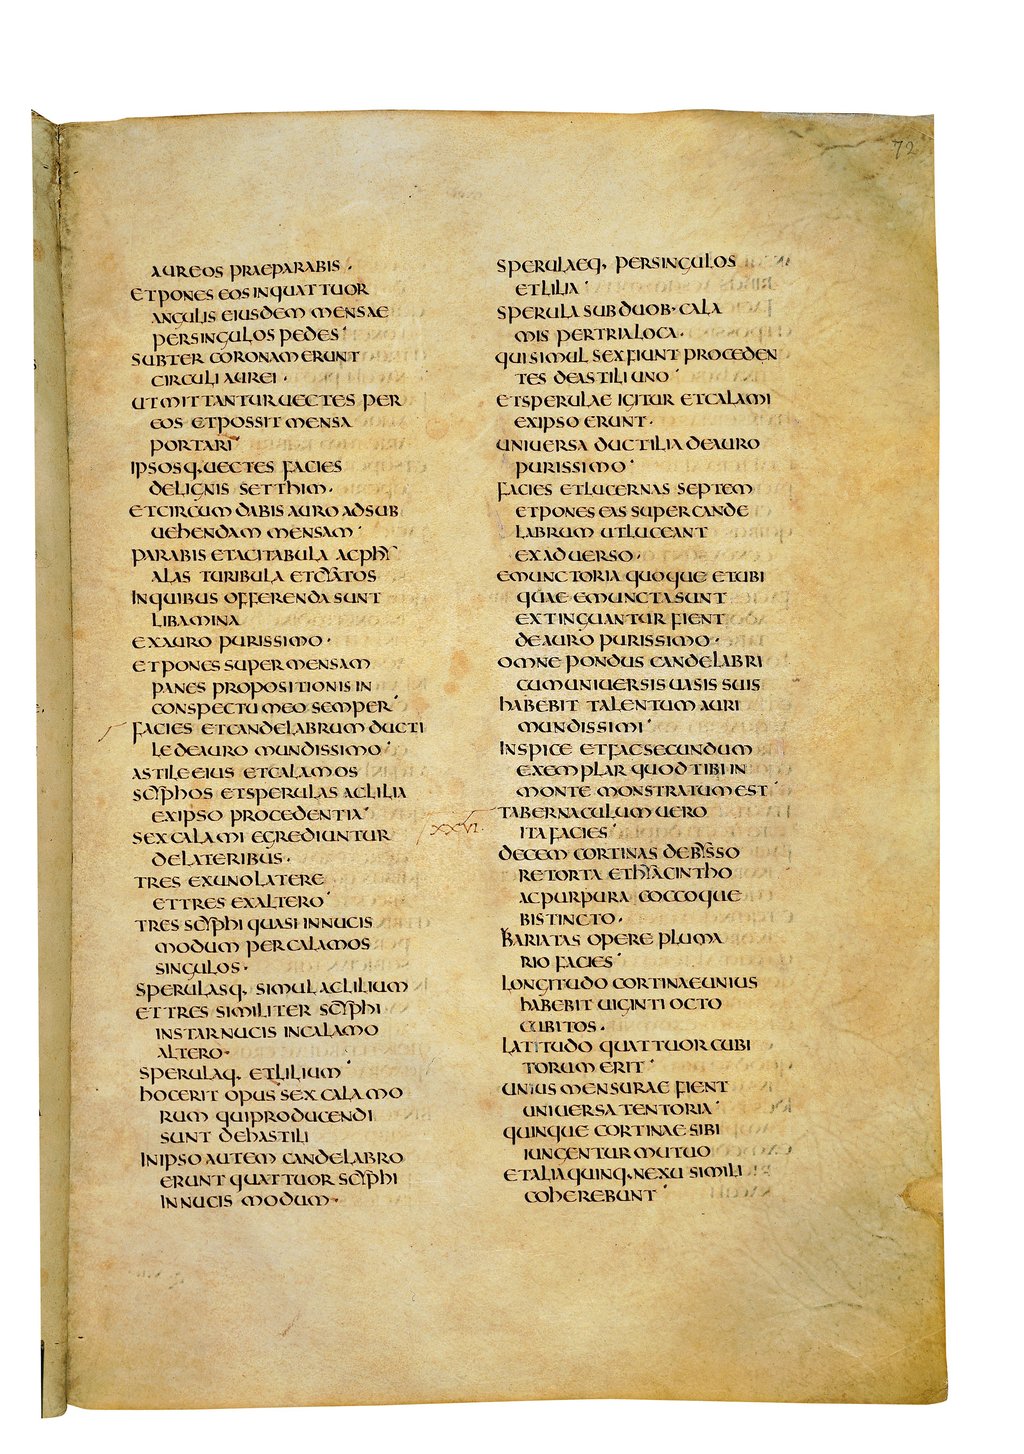 72
AUREOS PRAEPARABIS ·
ET PONES EOS IN QUATTUOR
ANGULIS EIUSDEM MENSAE
PER SINGULOS PEDES ·
SUBTER CORONAM ERUNT
CIRCULI AUREI ·
UT MITTANTUR UECTES PER
EOS ET POSSIT MENSA
PORTARI
IPSOSQ· UECTES FACIES
DE LIGNIS SETTHIM ·
ET CIRCUMDABIS AURO AD SUB
UEHENDAM MENSAM ·
PARABIS ET ACITABULA AC PHY
ALAS TURIBULA ET CYATOS
IN QUIBUS OFFERENDA SUNT
LIBAMINA
EX AURO PURISSIMO ·
ET PONES SUPER MENSAM
PANES PROPOSITIONIS IN
CONSPECTU MEO SEMPER ·
FACIES ET CANDELABRUM DUCTI
LE DE AURO MUNDISSIMO ·
ASTILE EIUS ET CALAMOS
SCYPHOS ET SPERULAS AC LILIA
EX IPSO PROCEDENTIA ·
SEX CALAMI EGREDIUNTUR
DE LATERIBUS ·
TRES EX UNO LATERE
ET TRES EX ALTERO ·
TRES SCYPHI QUASI IN NUCIS
MODUM PER CALAMOS
SINGULOS ·
SPERULASQ· SIMUL AC LILIUM
ET TRES SIMILITER SCYPHI
INSTAR NUCIS IN CALAMO
ALTERO ·
SPERULAQ· ET LILIUM ·
HOC ERIT OPUS SEX CALAMO
RUM QUI PRODUCENDI
SUNT DE HASTILI
IN IPSO AUTEM CANDELABRO
ERUNT QUATTUOR SCYPHI
IN NUCIS MODUM ·
SPERULAEQ· PER SINGULOS
ET LILIA ·
SPERULA SUB DUOB· CALA
MIS PER TRIA LOCA ·
QUI SIMUL SEX FIUNT PROCEDEN
TES DE ASTILI UNO ·
ET SPERULAE IGITUR ET CALAMI
EX IPSO ERUNT ·
UNIUERSA DUCTILIA DE AURO
PURISSIMO ·
FACIES ET LUCERNAS SEPTEM
ET PONES EAS SUPER CANDE
LABRUM UT LUCEANT
EX ADUERSO ·
EMUNCTORIA QUOQUE ET UBI
QUAE EMUNCTA SUNT
EXTINGUANTUR FIENT
DE AURO PURISSIMO ·
OMNE PONDUS CANDELABRI
CUM UNIUERSIS UASIS SUIS
HABEBIT TALENTUM AURI
MUNDISSIMI ·
INSPICE ET FAC SECUNDUM
EXEMPLAR QUOD TIBI IN
MONTE MONSTRATUM EST ·
XXVI·
TABERNACULUM UERO
ITA FACIES ·
DECEM CORTINAS DE BYSSO
RETORTA ET HYACINTHO
AC PURPURA COCCOQUE
BIS TINCTO ·
BARIATAS OPERE PLUMA
RIO FACIES ·
LONGITUDO CORTINAE UNIUS
HABEBIT UIGINTI OCTO
CUBITOS ·
LATITUDO QUATTUOR CUBI
TORUM ERIT ·
UNIUS MENSURAE FIENT
UNIUERSA TENTORIA ·
QUINQUE CORTINAE SIBI
IUNGENTUR MUTUO
ET ALIA QUINQ· NEXU SIMILI
COHEREBUNT ·